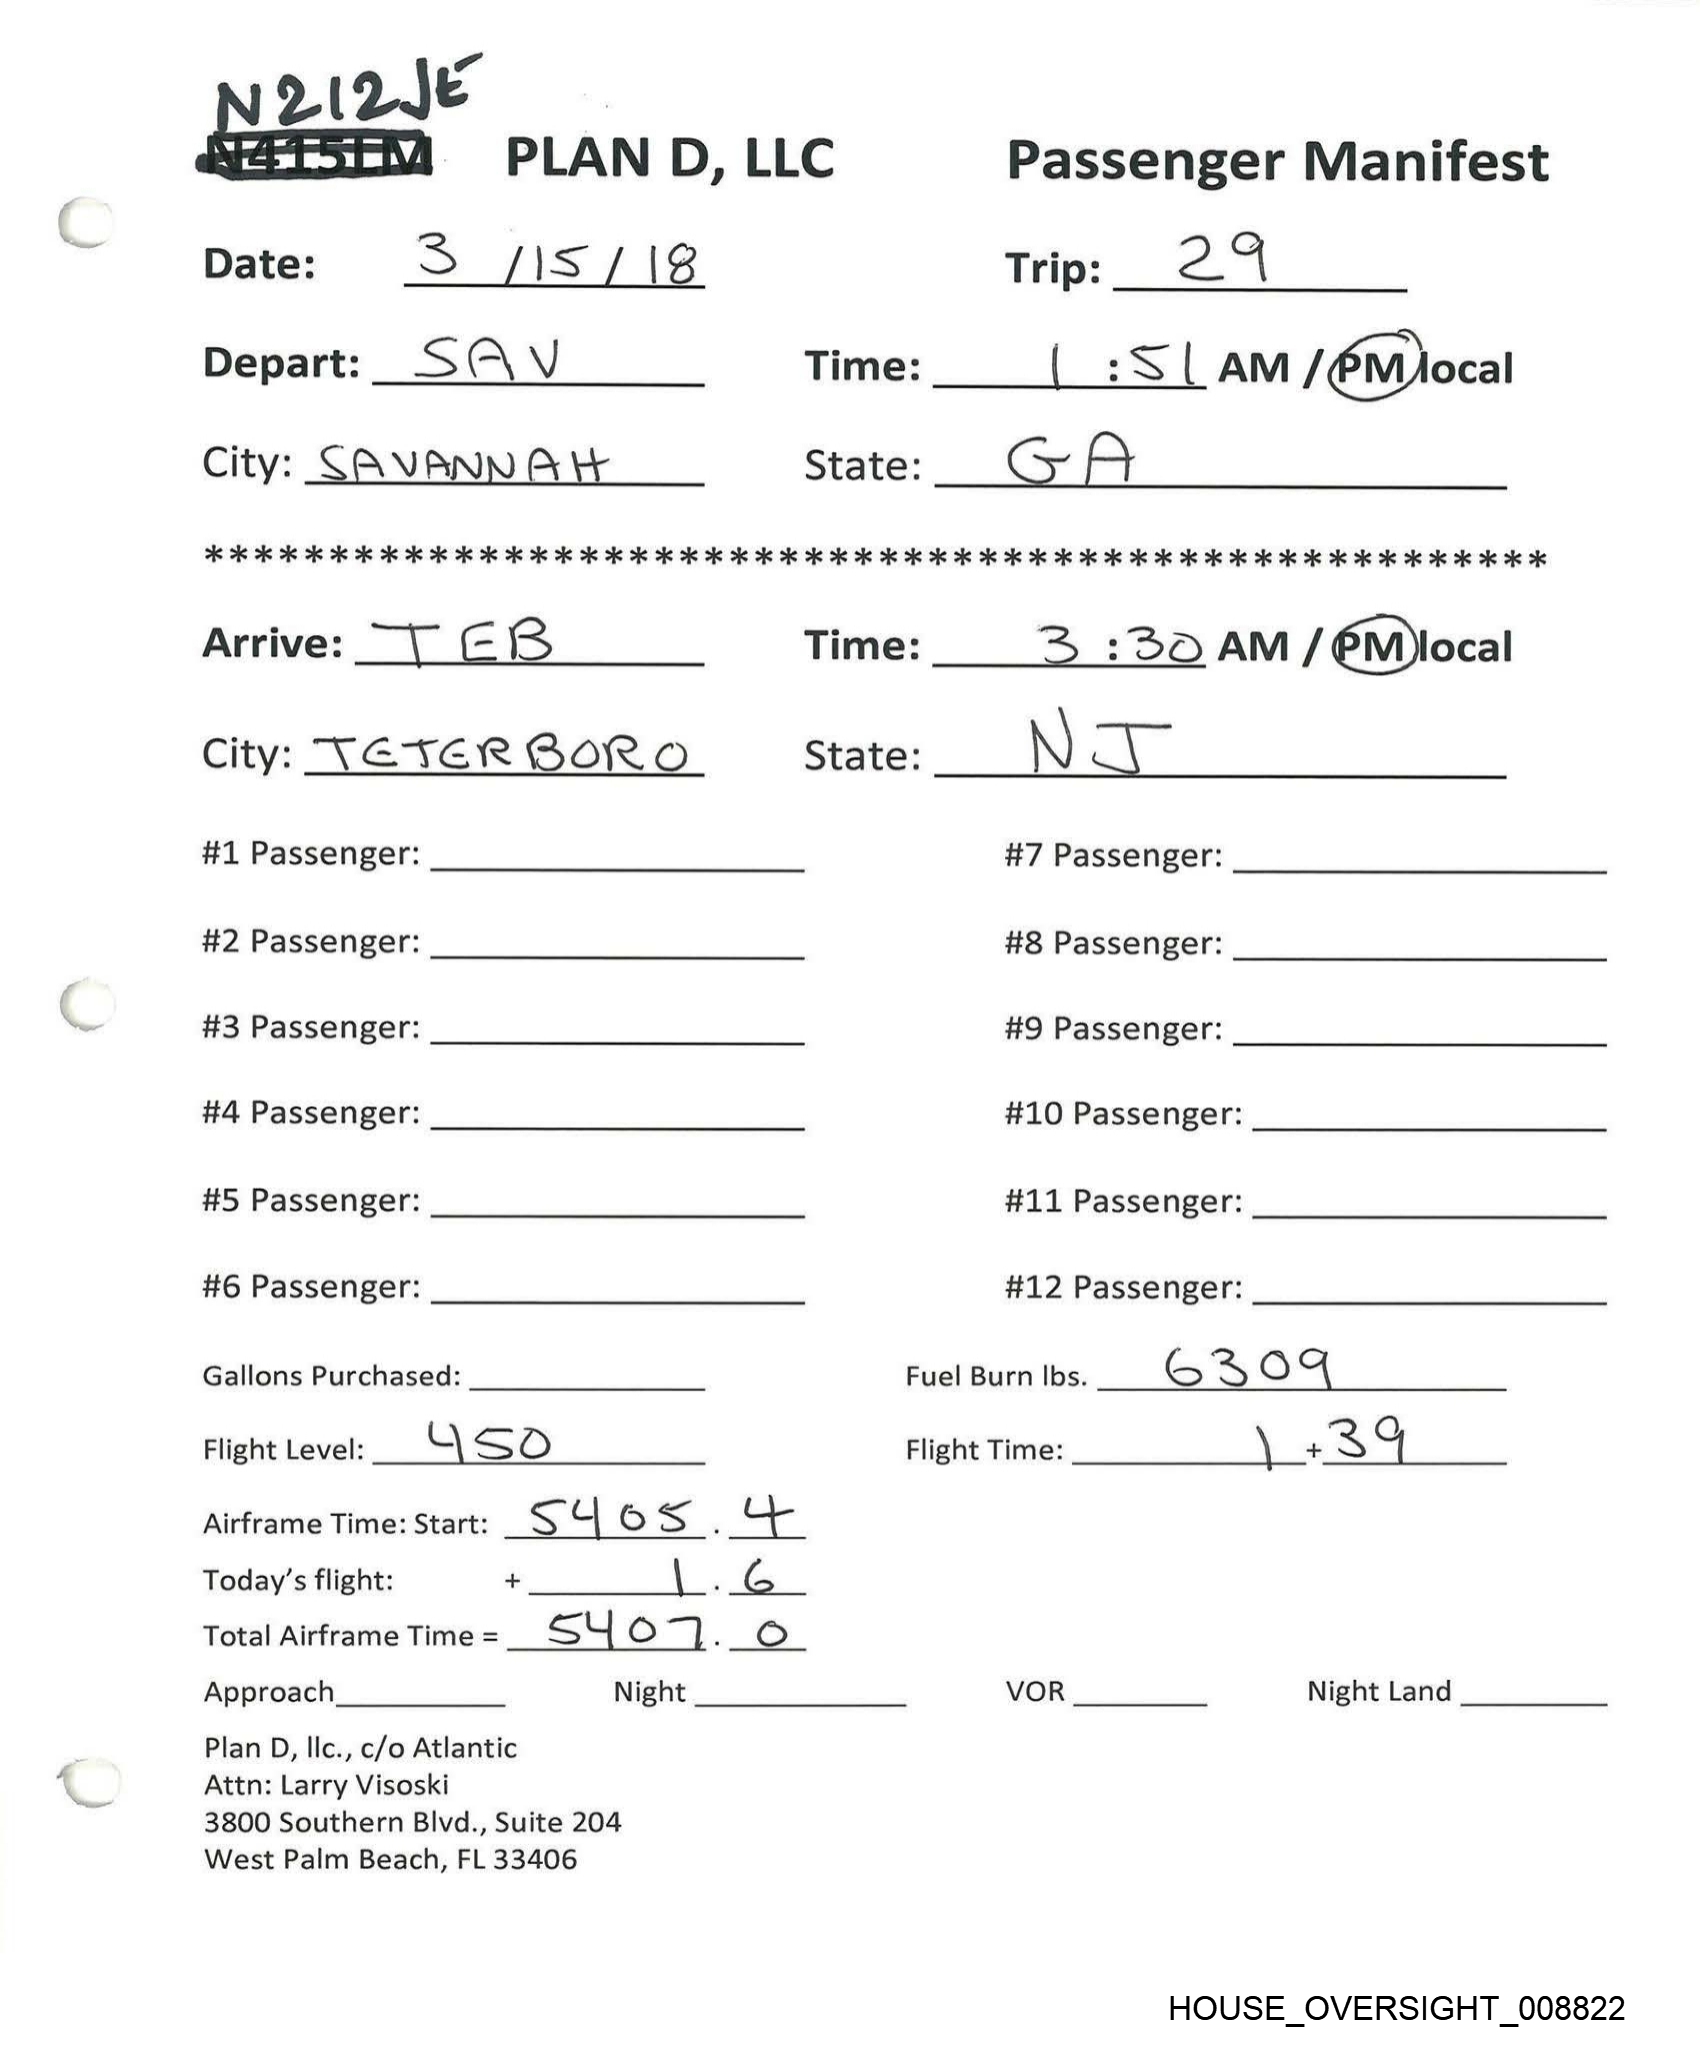 N212JE
N415LM PLAN D, LLC Passenger Manifest
Date: 3 /15/18 Trip: 29
Depart: SAV Time: 1 :51 AM / PM local
City: SAVANNAH State: GA
******************************************************
Arrive: TEB Time: 3 :30 AM / PM local
City: TETERBORO State: NJ
#1 Passenger: #7 Passenger:
#2 Passenger: #8 Passenger:
#3 Passenger: #9 Passenger:
#4 Passenger: #10 Passenger:
#5 Passenger: #11 Passenger:
#6 Passenger: #12 Passenger:
Gallons Purchased: Fuel Burn lbs. 6309
Flight Level: 450 Flight Time: 1 + 39
Airframe Time: Start: 5405 . 4
Today's flight: + 1 . 6
Total Airframe Time = 5407 . 0
Approach Night VOR Night Land
Plan D, llc., c/o Atlantic
Attn: Larry Visoski
3800 Southern Blvd., Suite 204
West Palm Beach, FL 33406
HOUSE_OVERSIGHT_008822